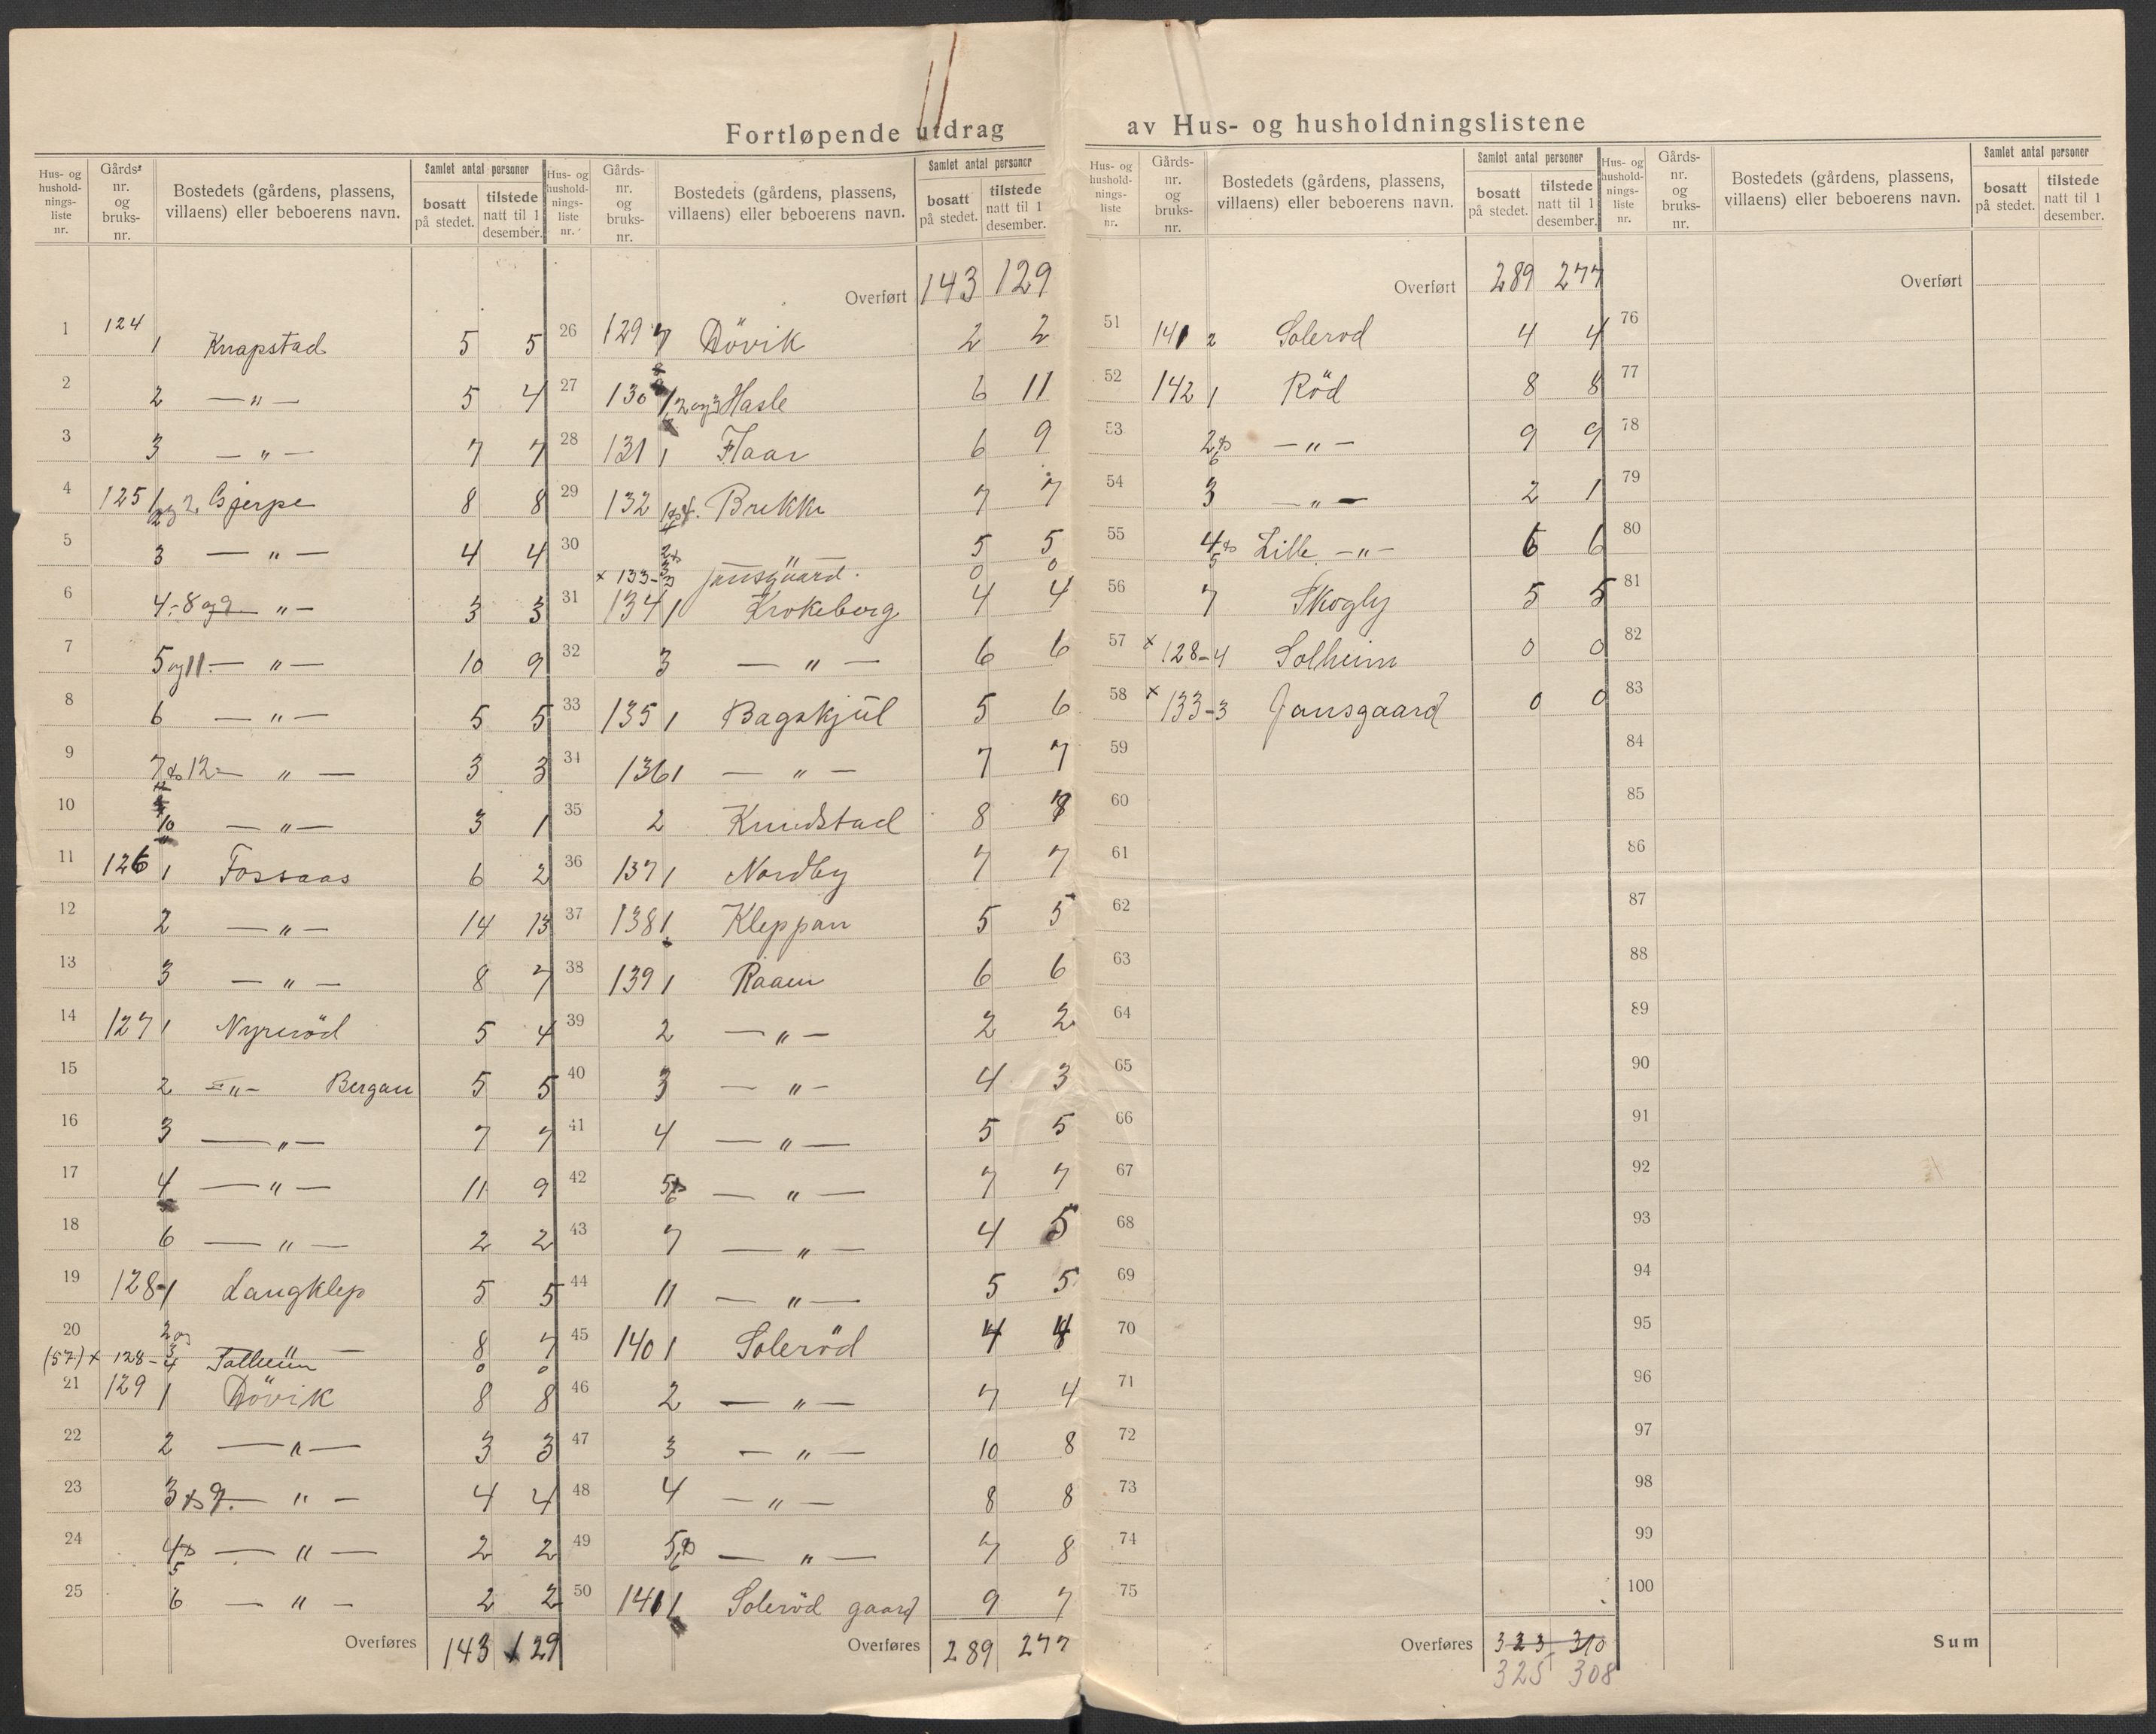 Fortløpende utdrag av Hus- og husholdningslistene
Hus- og hushold- nings- liste nr. | Gårds- nr. og bruks- nr. | Bostedets (gårdens, plassens, villaens) eller beboerens navn. | Samlet antal personer | bosatt på stedet. | tilstede natt til 1 desember.
1 124 1 Knapstad 5 5
2 2 — " — 5 4
3 3 — " — 7 7
4 125 1 og 2 Gjerpe 8 8
5 3 — " — 4 4
6 4-8 og 9 — " — 3 3
7 5 og 11. — " — 10 9
8 6 — " — 5 5
9 7 & 12 — " — 3 3
10 10 — " — 3 1
11 126 1 Fossaas 6 2
12 2 — " — 14 13
13 3 — " — 8 7
14 127 1 Nyreröd 5 4
15 2 — " — Bergan 5 5
16 3 — " — 7 7
17 4 — " — 11 9
18 6 — " — 2 2
19 128-1 Langklep 5 5
20 2 og 3 — 8 7
(57) x 128-4 Solheim 0 0
21 129 1 Dövik 8 8
22 2 — " — 3 3
23 3 & 9. — " — 4 4
24 4 & 5 — " — 2 2
25 6 — " — 2 2
Overføres 143 129
Hus- og hushold- nings- liste nr. | Gårds- nr. og bruks- nr. | Bostedets (gårdens, plassens, villaens) eller beboerens navn. | Samlet antal personer | bosatt på stedet. | tilstede natt til 1 desember.
Overført 143 129
26 129 7 Dövik 2 2
27 130 1, 2 og 3 Hasle 6 11
28 131 1 Haar 6 9
29 132 1 & 4. Brekke 7 7
30 2 & 3 — " — 5 5
x 133-3 Jansgaard. 0 0
31 134 1 Krokeborg 4 4
32 3 — " — 6 6
33 135 1 Bagskjül 5 6
34 136 1 — " — 7 7
35 2 Knudstad 8 8
36 137 1 Nordby 7 7
37 138 1 Kleppan 5 5
38 139 1 Raaen 6 6
39 2 — " — 2 2
40 3 — " — 4 3
41 4 — " — 5 5
42 5 & 6 — " — 7 7
43 7 — " — 4 5
44 11 — " — 5 5
45 140 1 Soleröd 4 4
46 2 — " — 7 4
47 3 — " — 10 8
48 4 — " — 8 8
49 5 & 6 — " — 7 8
50 141 1 Soleröd gaard 9 7
Overføres 289 277
Hus- og hushold- nings- liste nr. | Gårds- nr. og bruks- nr. | Bostedets (gårdens, plassens, villaens) eller beboerens navn. | Samlet antal personer | bosatt på stedet. | tilstede natt til 1 desember.
Overført 289 277
51 141 2 Solerod 4 4
52 142 1 Röd 8 8
53 2 & 6 — " — 9 9
54 3 — " — 2 1
55 4 & 5 Lille — " — 6 6
56 7 Skogly 5 5
57 x 128-4 Solheim 0 0
58 x 133-3 Jansgaard 0 0
59
60
61
62
63
64
65
66
67
68
69
70
71
72
73
74
75
Overføres 323 310
325 308
Hus- og hushold- nings- liste nr. | Gårds- nr. og bruks- nr. | Bostedets (gårdens, plassens, villaens) eller beboerens navn. | Samlet antal personer | bosatt på stedet. | tilstede natt til 1 desember.
Overført
76
77
78
79
80
81
82
83
84
85
86
87
88
89
90
91
92
93
94
95
96
97
98
99
100
Sum